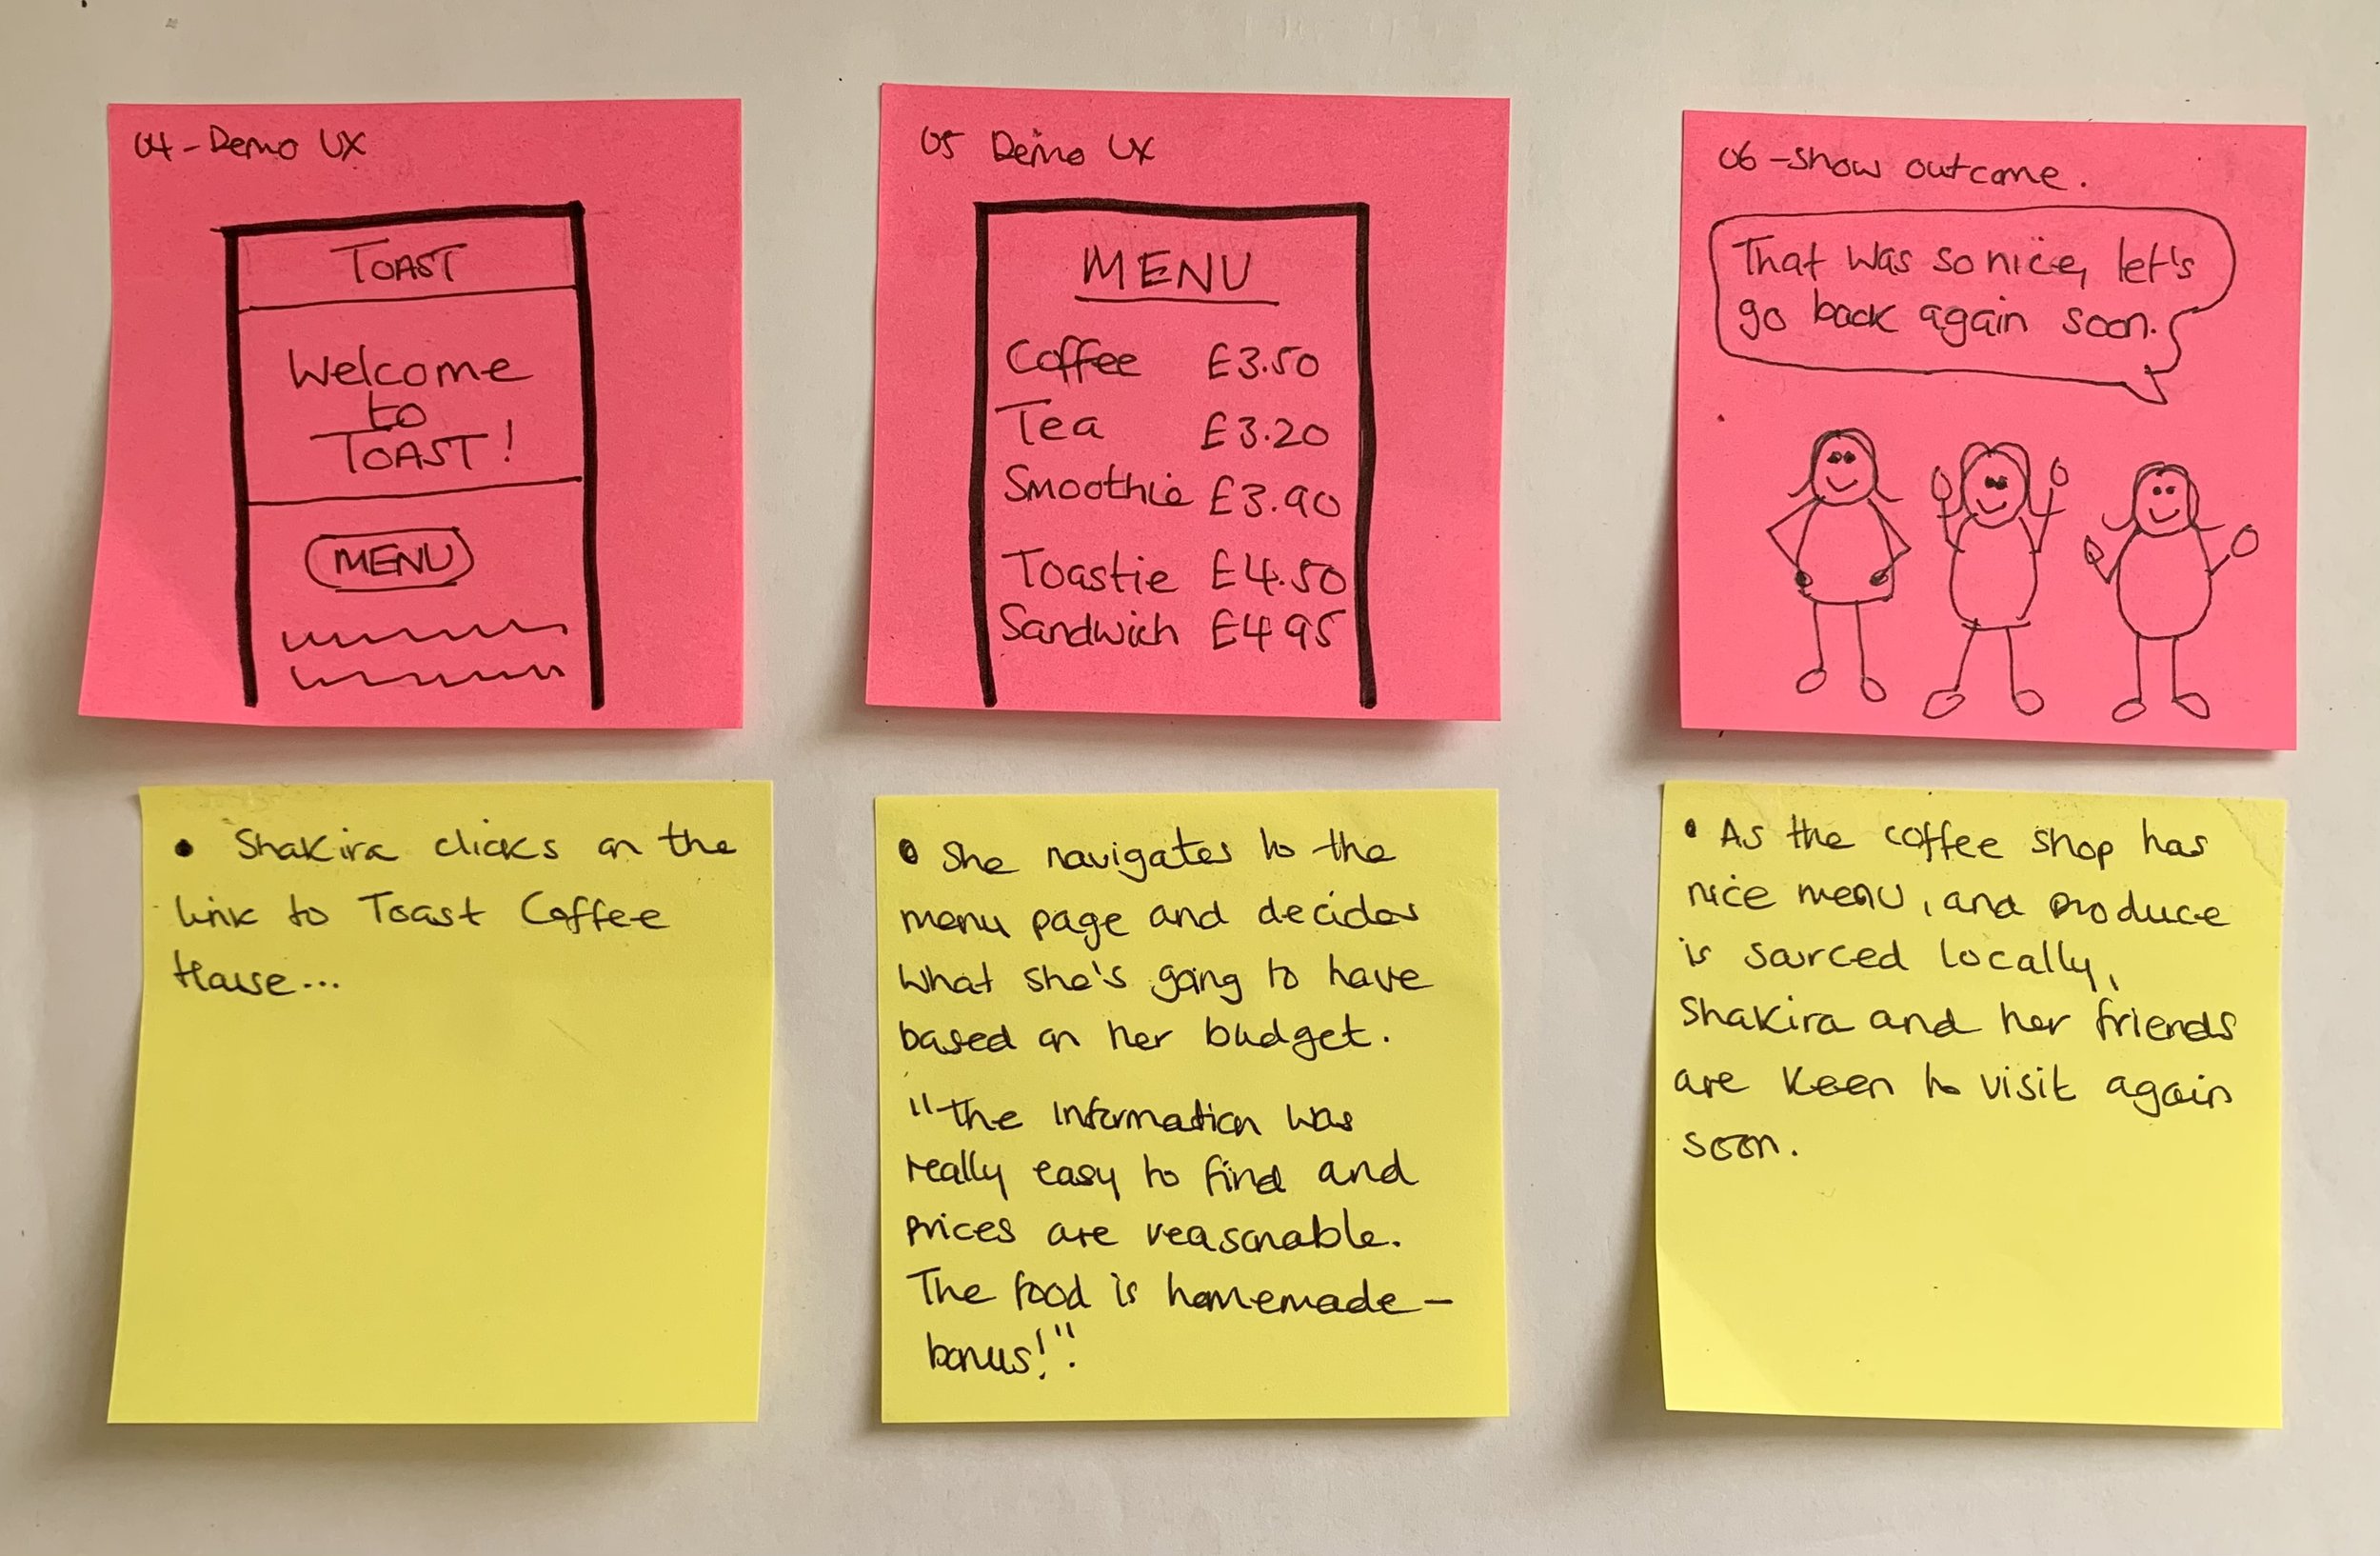 04 - Demo UX
TOAST
Welcome
to
TOAST!
MENU
05 Demo UX
MENU
Coffee £3.50
Tea £3.20
Smoothie £3.90
Toastie £4.50
Sandwich £4 95
06 - show outcome.
That was so nice, let's
go back again soon.
• Shakira clicks on the
link to Toast Coffee
House...
• She navigates to the
menu page and decides
what she's going to have
based on her budget.
"The information was
really easy to find and
prices are reasonable.
The food is homemade -
bonus!".
• As the coffee shop has
nice menu, and produce
is sourced locally,
Shakira and her friends
are keen to visit again
soon.